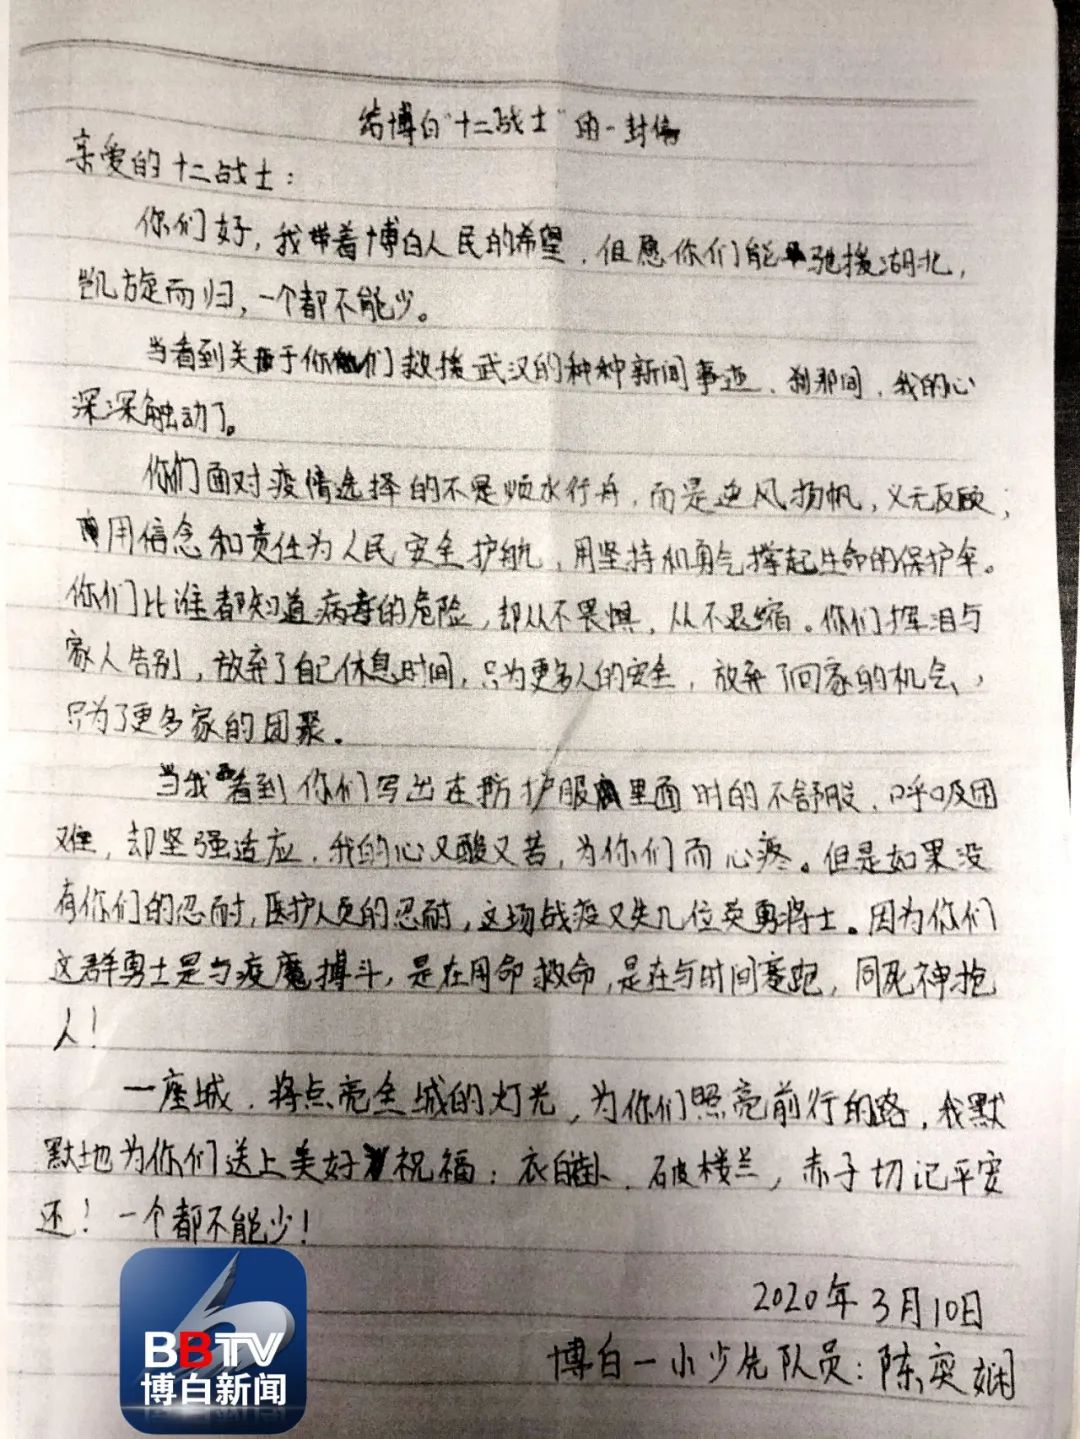 给博白"十二战士"的一封信
亲爱的十二战士:
你们好,我带着博白人民的希望,但愿你们能驰援湖北,
凯旋而归,一个都不能少。
当看到关于你们救援武汉的种种新闻事迹、刹那间,我的心
深深触动了。
你们面对疫情选择的不是顺水行舟,而是逆风扬帆,义无反顾;
用信念和责任为人民安全护航,用坚持和勇气撑起生命的保护伞。
你们比谁都知道病毒的危险,却从不畏惧,从不退缩。你们挥泪与
家人告别,放弃了自己休息时间,只为更多人的安全,放弃了回家的机会,
只为了更多家的团聚。
当我看到你们写出在防护服里面时的不舒服,呼吸困
难,却坚强适应,我的心又酸又苦,为你们而心疼。但是如果没
有你们的忍耐,医护人员的忍耐,这场战疫又失几位英勇将士。因为你们
这群勇士是与疫魔搏斗,是在用命救命,是在与时间赛跑,同死神抢
人!
一座城,将点亮全城的灯光,为你们照亮前行的路,我默
默地为你们送上美好祝福:衣白褂、破楼兰,赤子切记平安
还!一个都不能少!
2020年3月10日
博白一小少先队员:陈奕娴
BBTV
博白新闻